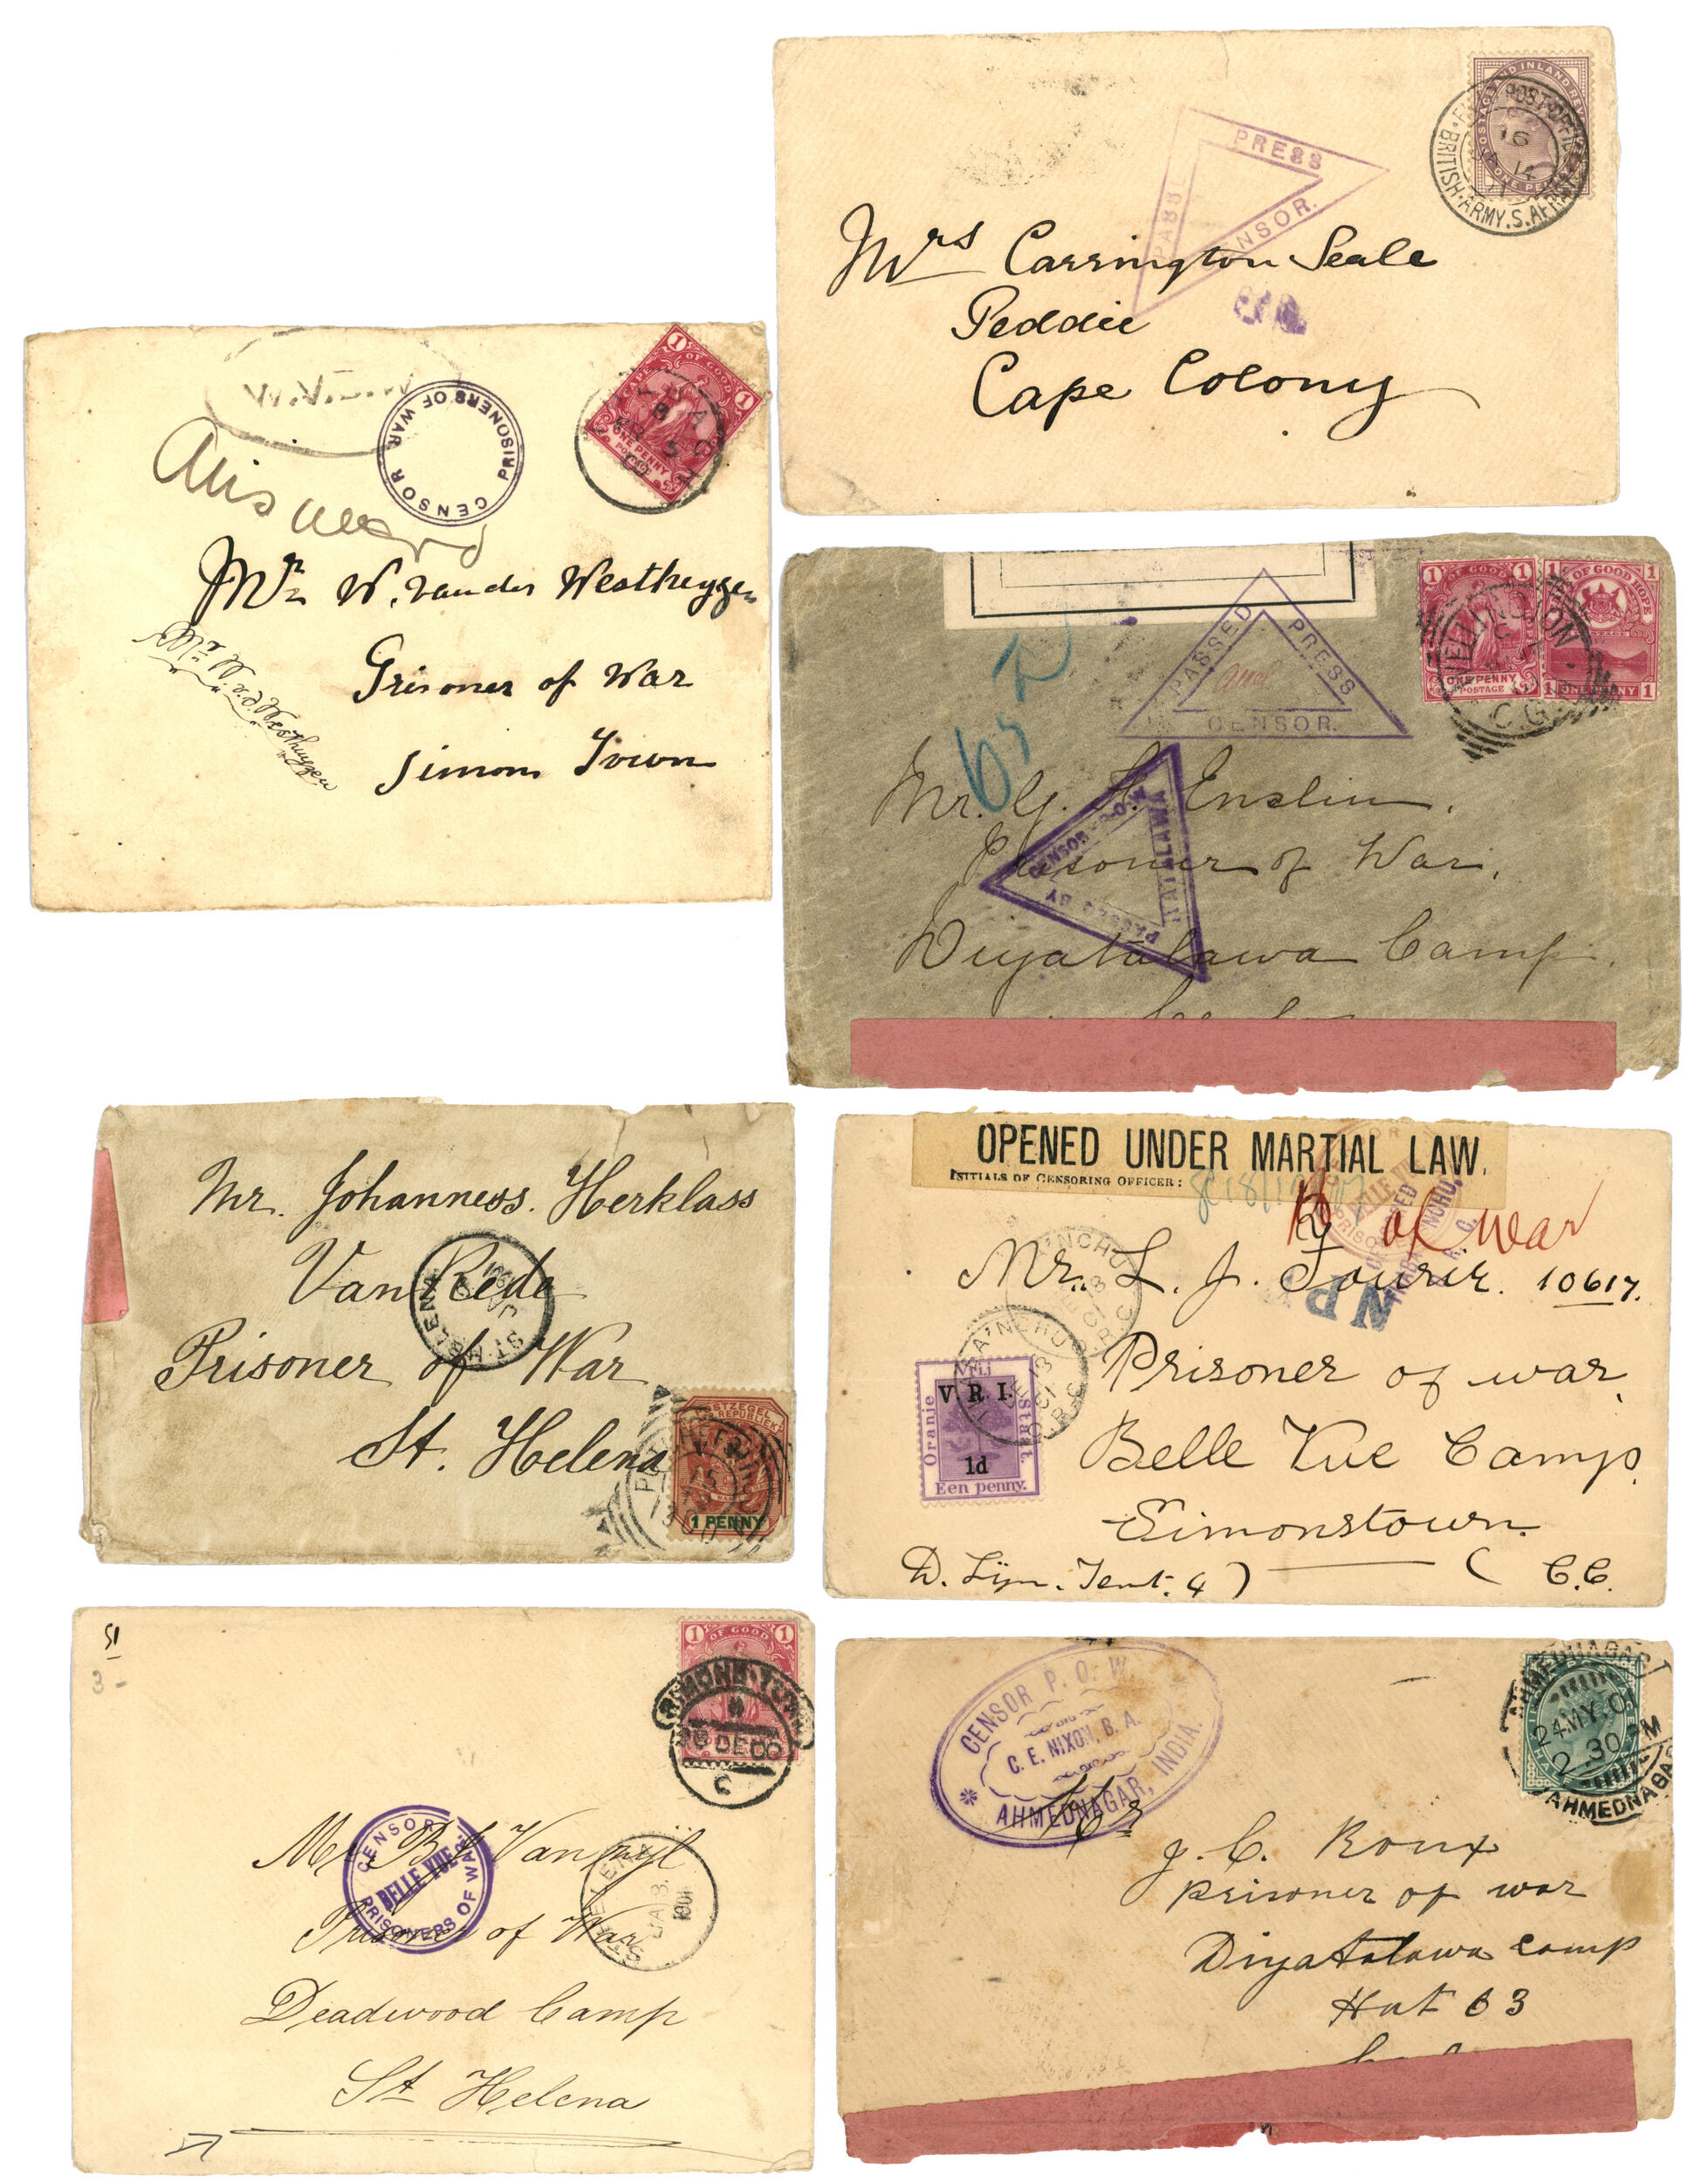 POSTAGE AND INLAND REV
ONE PENNY
POST OFFICE
16
14
BRITISH ARMY S. AFRICA
PRESS
CENSOR.
Mrs Carrington Seale
Peddie
Cape Colony
1 OF GOOD 1
ONE PENNY
CENSOR PRISONERS OF WAR
Mr W. van der Westhuyzen
Prisoner of War
Simons Town
Mr W. v. d. Westhuyzen
1 OF GOOD 1
ONE PENNY
POSTAGE
1 OF GOOD HOPE 1
1 ONE PENNY 1
WELLINGTON
C.G.H.
PASSED PRESS CENSOR.
PASSED BY
Mr. G. H. Enslin.
Prisoner of War.
Diyatalawa Camp.
Mr. Johanness. Herklass
Van Rede
Prisoner of War
St. Helena
ST. HELENA
POSTZEGEL
1 PENNY
OPENED UNDER MARTIAL LAW.
INITIALS OF CENSORING OFFICER:
P of war
Mr. L. J. Fourie. 10617.
NP
THABA'NCHU
DE 13
01
O.R.C.
Oranje Vrij staat.
V. R. I.
1d
Een penny.
Prisoner of war
Belle Vue Camp.
Simonstown.
D. Lÿn. Tent. 4) ( C.C.
51
3 -
1 OF GOOD 1
SIMONS TOWN
DE 00
C
CENSOR
BELLE VUE
PRISONERS OF WAR.
Mr B J Van zijl
Prisoner of War
ST. HELENA
JA 3
1901
Deadwood Camp
St Helena
CENSOR P. O. W.
C. E. NIXON, B. A.
AHMEDNAGAR, INDIA.
AHMEDNAGAR
24 MY. 01
2.30 PM
AHMEDNAGAR
J. C. Roux
prisoner of war
Diyatalawa camp
Hut 63